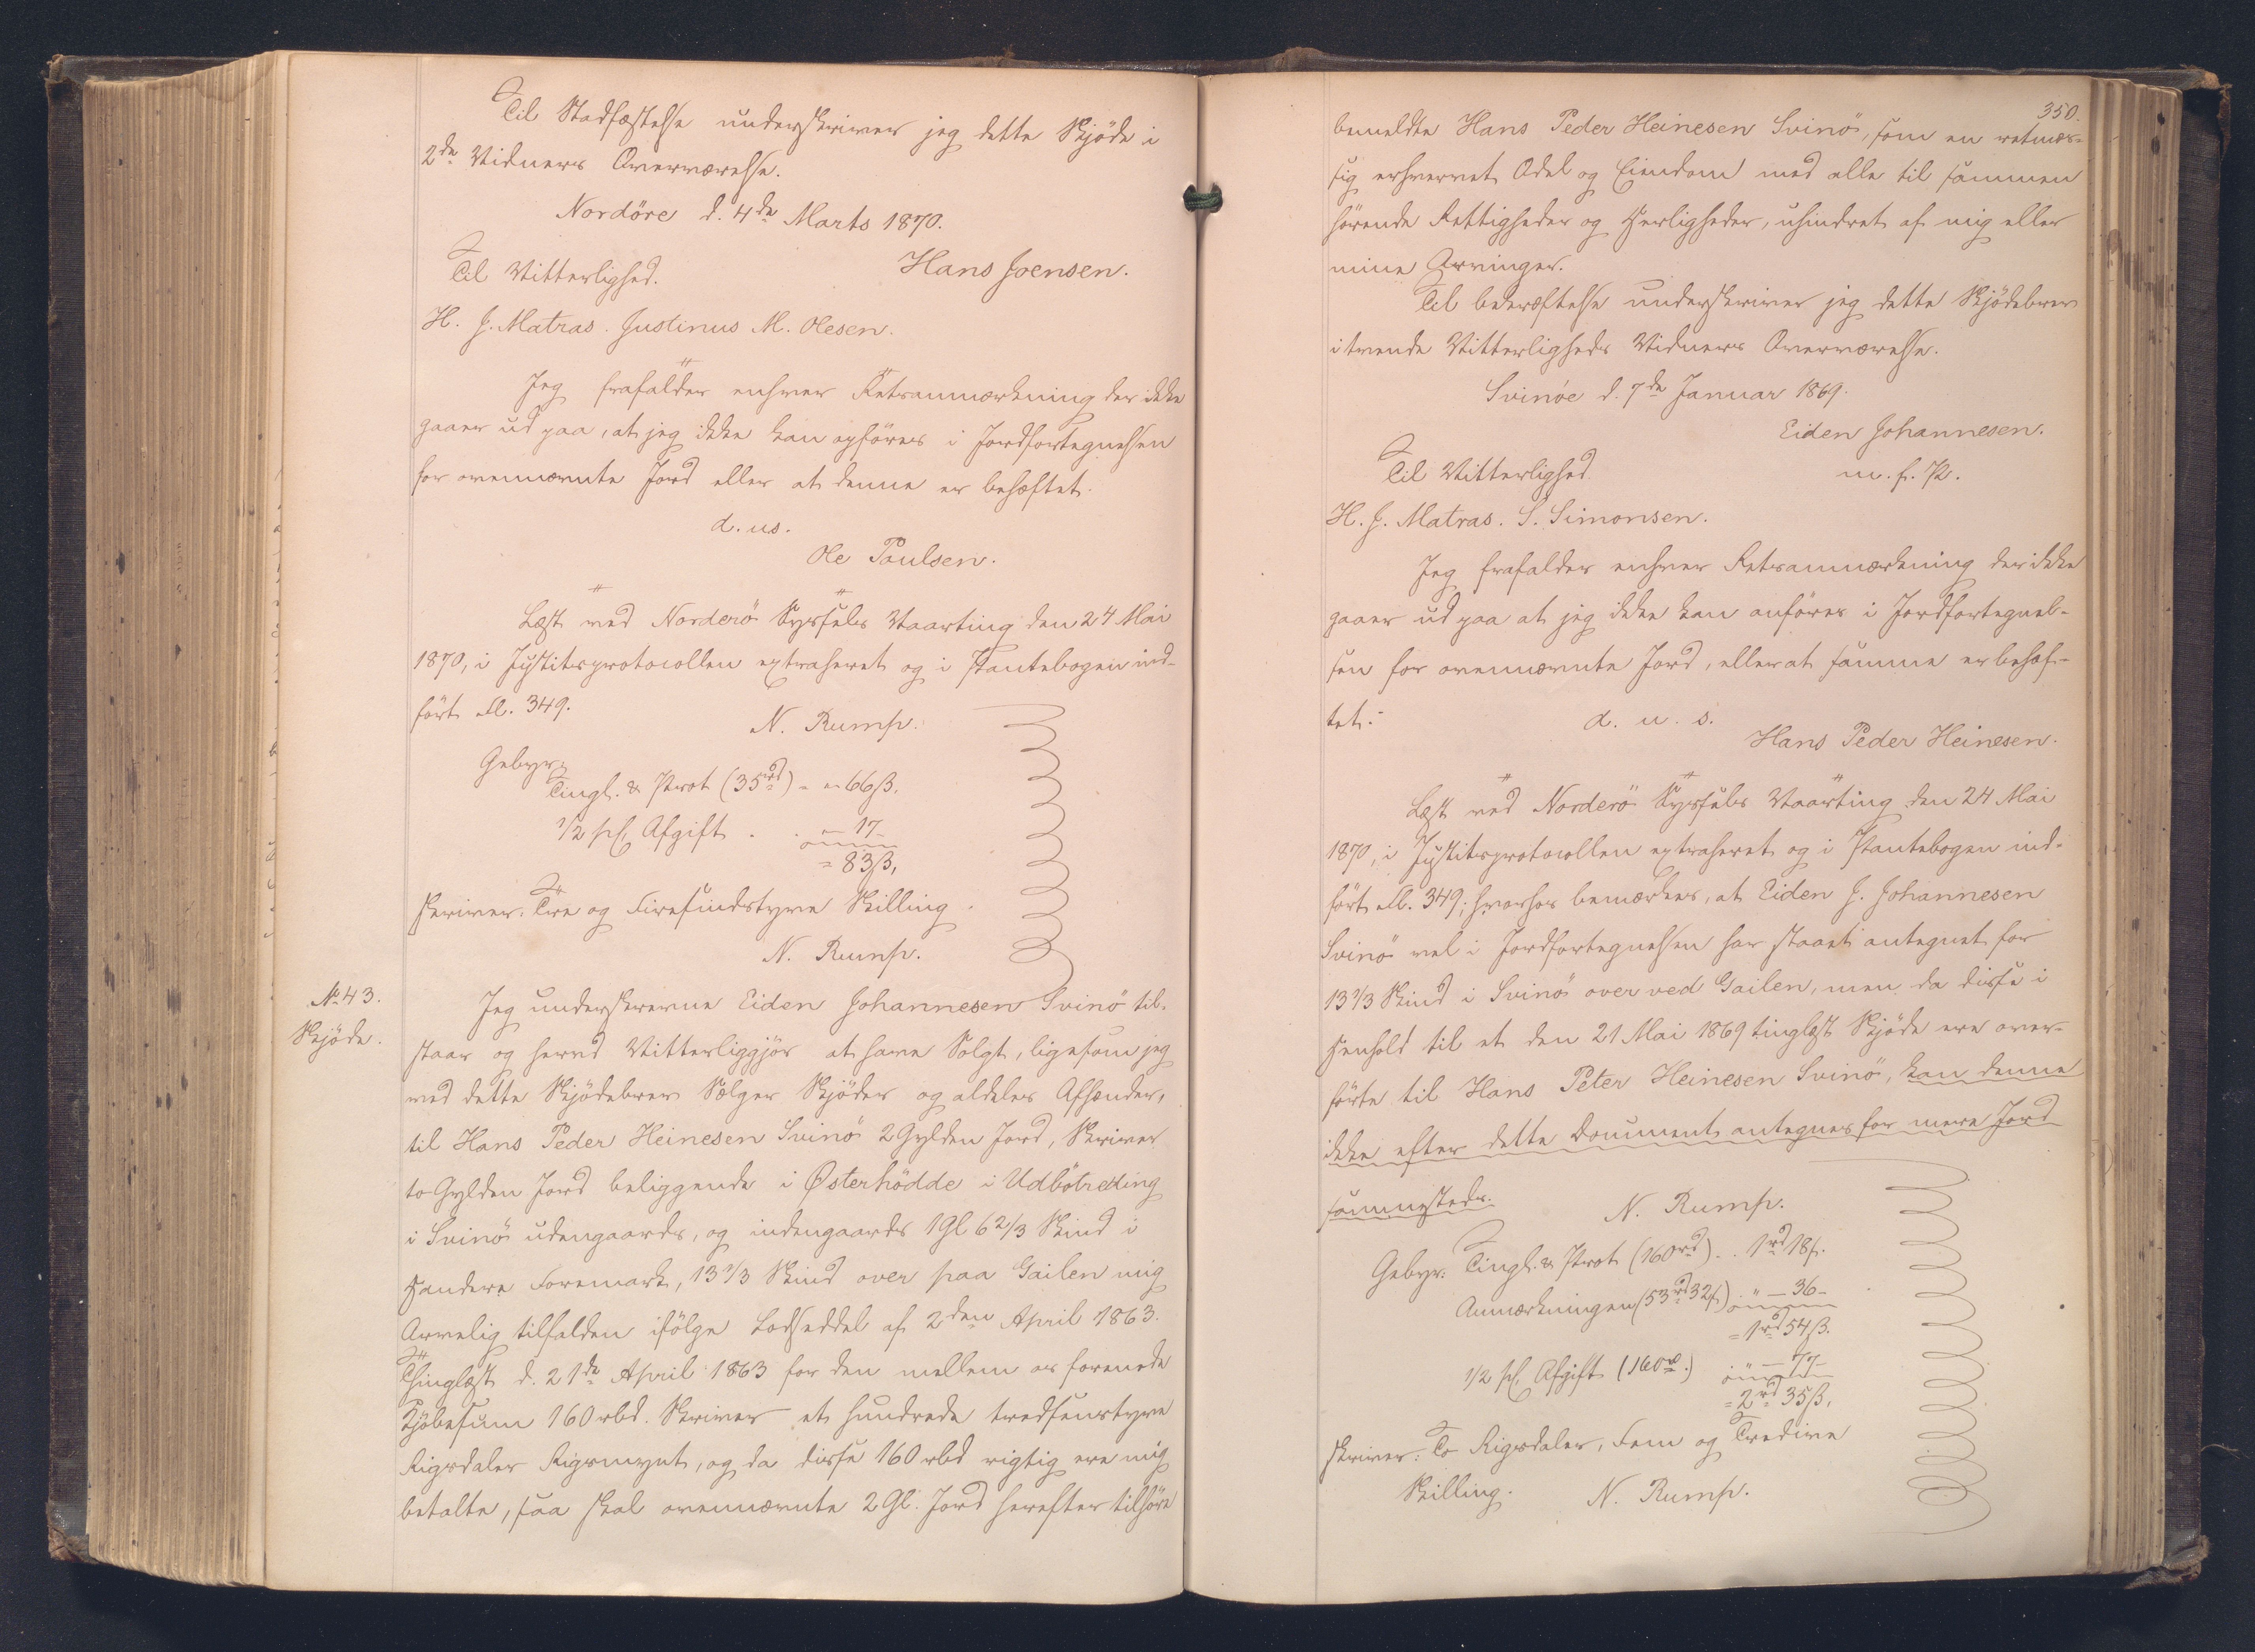 Til Stadfæstelse underskriver jeg dette Skjöde i
2de Vidners Overværelse.
Nordöre d. 4de Marts 1870.
Hans Joensen.
Til Vitterlighed.
H. J. Matras. Justinus M. Olesen.
Jeg frafalder enhver Retsanmærkning der ikke
gaaer ud paa, at jeg ikke kan opföres i Jordfortegnelsen
for ovennævnte Jord eller at denne er behæftet.
d. us.
Ole Poulsen.
Læst ved Norderö Sysfels Vaarting den 24 Mai
1870, i Justitsprotocollen extraheret og i Pantebogen ind-
fört fol. 349.
N. Rump.
Gebyr:
Tingl. & Prot (35rd) - " 66ß.
1/2 pCt Afgift . . " 17-
= 83ß,
skriver: Tre og Firesindstyve Skilling.
N. Rump.
No 43.
Skjöde.
Jeg underskrevne Eiden Johannesen Svinö til-
staar og herved Vitterliggjör at have Solgt, ligesom jeg
med dette Skjödebrev Sælger Skjöder og aldeles Afhænder,
til Hans Peder Heinesen Svinö 2 Gylden Jord, Skriver
to Gylden Jord beliggende i Østerhödde i Udbötreding
i Svinö udengaards, og indengaards 1 Gl 6 2/3 Skind i
Handere Foremark, 13 1/3 Skind over paa Gailen mig
Arvelig tilfalden ifölge Lodseddel af 2den April 1863.
Thinglæst d. 21de April 1863 for den mellem os forenede
Kjöbesum 160 rbd. Skriver et hundrede tredsenstyve
Rigsdaler Rigsmynt, og da disse 160 rbd rigtig ere mig
betalte, saa skal ovennævnte 2 Gl. Jord herefter tilhöre
350.
bemeldte Hans Peder Heinesen Svinö, som en retmæs-
sig erhvervet Odel og Eiendom med alle til sammen
hörende Rettigheder og Herligheder, uhindret af mig eller
mine Arvinger.
Til bekræftelse underskriver jeg dette Skjödebrev
i tvende Vitterligheds Vidners Overværelse.
Svinöe d. 7de Januar 1869.
Eiden Johannesen.
m. f. P.
Til Vitterlighed
H. J. Matras. S. Simonsen.
Jeg frafalder enhver Retsanmærkning der ikke
gaaer ud paa at jeg ikke kan anföres i Jordfortegnel-
sen for ovennævnte Jord, eller at samme er behæf-
tet.
d. u. s.
Hans Peder Heinesen.
Læst ved Norderö Sysfels Vaarting den 24 Mai
1870, i Justitsprotocollen extraheret og i Pantebogen ind-
fört fol. 349; hvorhos bemærkes, at Eiden J. Johannesen
Svinö vel i Jordfortegnelsen har staaet antegnet for
13 1/3 Skind i Svinö over ved Gailen, men da disse i
Henhold til et den 21 Mai 1869 tinglæst Skjöde ere over-
förte til Hans Peter Heinesen Svinö, kan denne
ikke efter dette Document antegnes for mere Jord
sammesteds.
N. Rump.
Gebyr: Tingl. & Prot (160rd) . . 1rd 18ß.
Anmærkningen (53rd 32ß) . " — 36-
= 1rd 54ß.
1/2 pCt Afgift (160rd.) . " — 77-
= 2rd 35ß,
skriver: To Rigsdaler, Fem og Tredive
Skilling.
N. Rump.